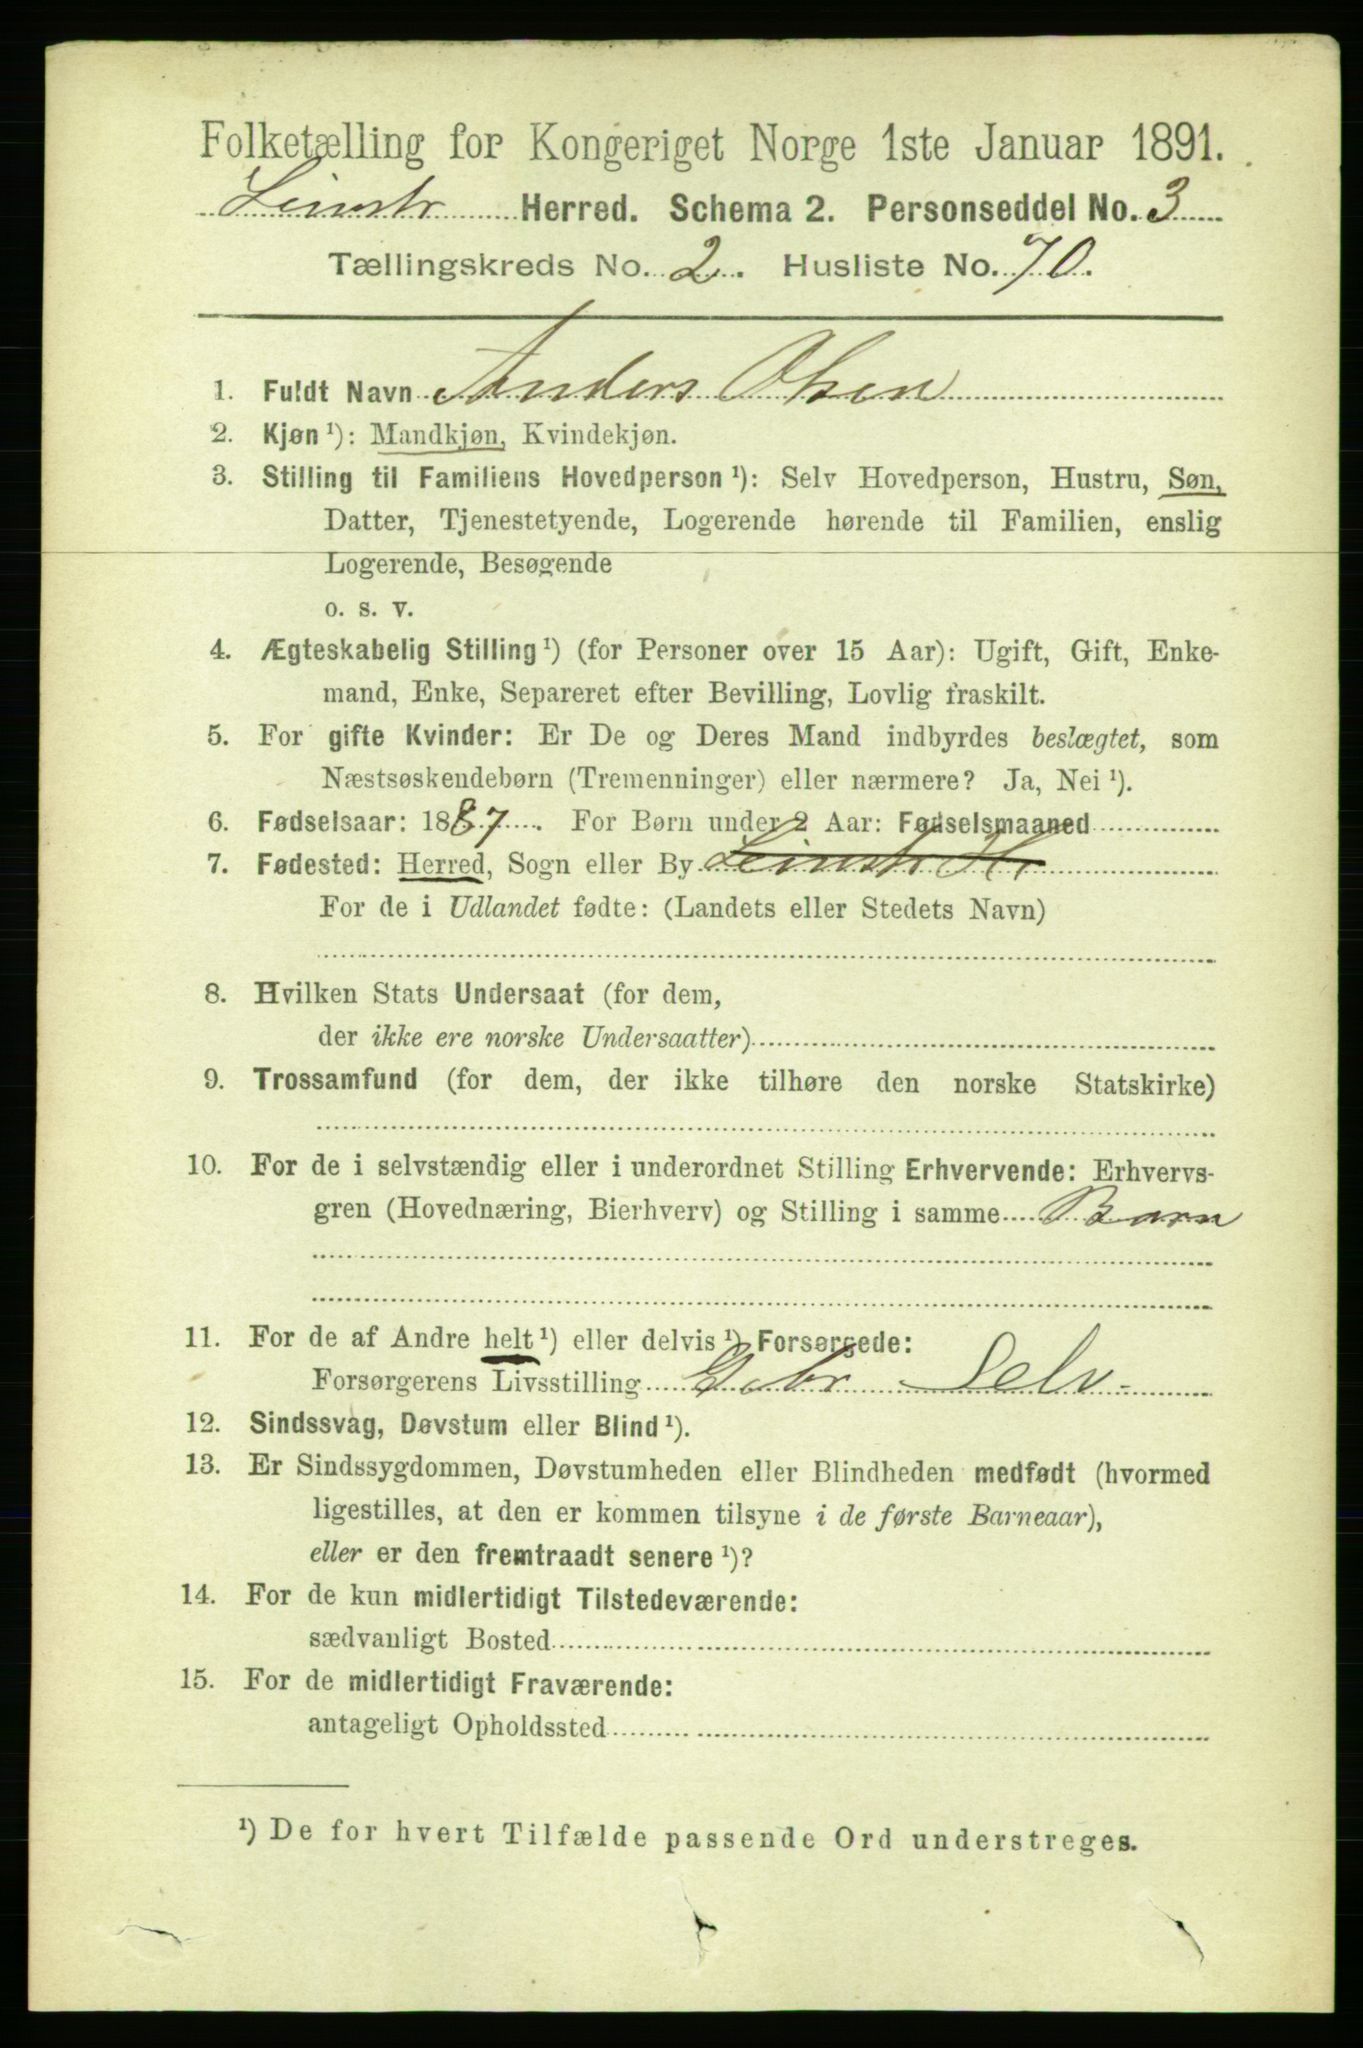 Folketælling for Kongeriget Norge 1ste Januar 1891.
Leinstr Herred. Schema 2. Personseddel No. 3
Tællingskreds No. 2. Husliste No. 70.
1. Fuldt Navn Anders Olsen
2. Kjøn ¹): Mandkjøn, Kvindekjøn.
3. Stilling til Familiens Hovedperson ¹): Selv Hovedperson, Hustru, Søn,
Datter, Tjenestetyende, Logerende hørende til Familien, enslig
Logerende, Besøgende
o. s. v.
4. Ægteskabelig Stilling ¹) (for Personer over 15 Aar): Ugift, Gift, Enke-
mand, Enke, Separeret efter Bevilling, Lovlig fraskilt.
5. For gifte Kvinder: Er De og Deres Mand indbyrdes beslægtet, som
Næstsøskendebørn (Tremenninger) eller nærmere? Ja, Nei ¹).
6. Fødselsaar: 1887. For Børn under 2 Aar: Fødselsmaaned
7. Fødested: Herred, Sogn eller By Leinstr Hr
For de i Udlandet fødte: (Landets eller Stedets Navn)
8. Hvilken Stats Undersaat (for dem,
der ikke ere norske Undersaatter)
9. Trossamfund (for dem, der ikke tilhøre den norske Statskirke)
10. For de i selvstændig eller i underordnet Stilling Erhvervende: Erhvervs-
gren (Hovednæring, Bierhverv) og Stilling i samme Barn
11. For de af Andre helt ¹) eller delvis ¹) Forsørgede:
Forsørgerens Livsstilling Gdbr Selv
12. Sindssvag, Døvstum eller Blind ¹).
13. Er Sindssygdommen, Døvstumheden eller Blindheden medfødt (hvormed
ligestilles, at den er kommen tilsyne i de første Barneaar),
eller er den fremtraadt senere ¹)?
14. For de kun midlertidigt Tilstedeværende:
sædvanligt Bosted
15. For de midlertidigt Fraværende:
antageligt Opholdssted
¹) De for hvert Tilfælde passende Ord understreges.